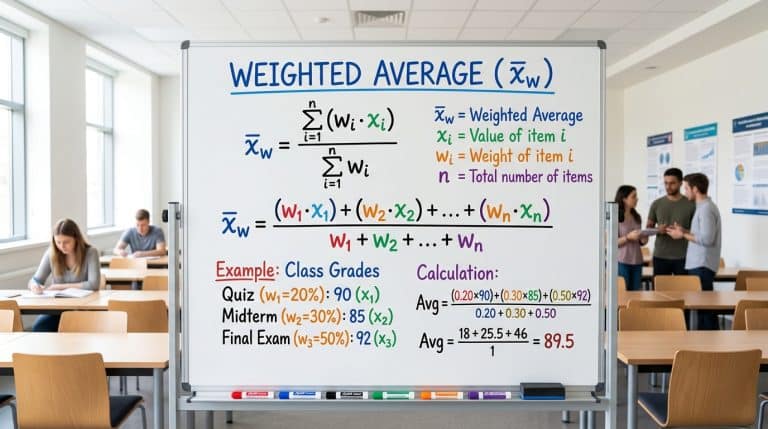 WEIGHTED AVERAGE (x̄w)
x̄w = ∑ⁿᵢ₌₁ (wᵢ · xᵢ) / ∑ⁿᵢ₌₁ wᵢ
x̄w = Weighted Average
xᵢ = Value of item i
wᵢ = Weight of item i
n = Total number of items
x̄w = (w₁·x₁) + (w₂·x₂) + ... + (wₙ·xₙ) / w₁ + w₂ + ... + wₙ
Example: Class Grades
Quiz (w₁=20%): 90 (x₁)
Midterm (w₂=30%): 85 (x₂)
Final Exam (w₃=50%): 92 (x₃)
Calculation:
Avg = (0.20×90)+(0.30×85)+(0.50×92) / 0.20 + 0.30 + 0.50
Avg = 18 + 25.5 + 46 / 1 = 89.5